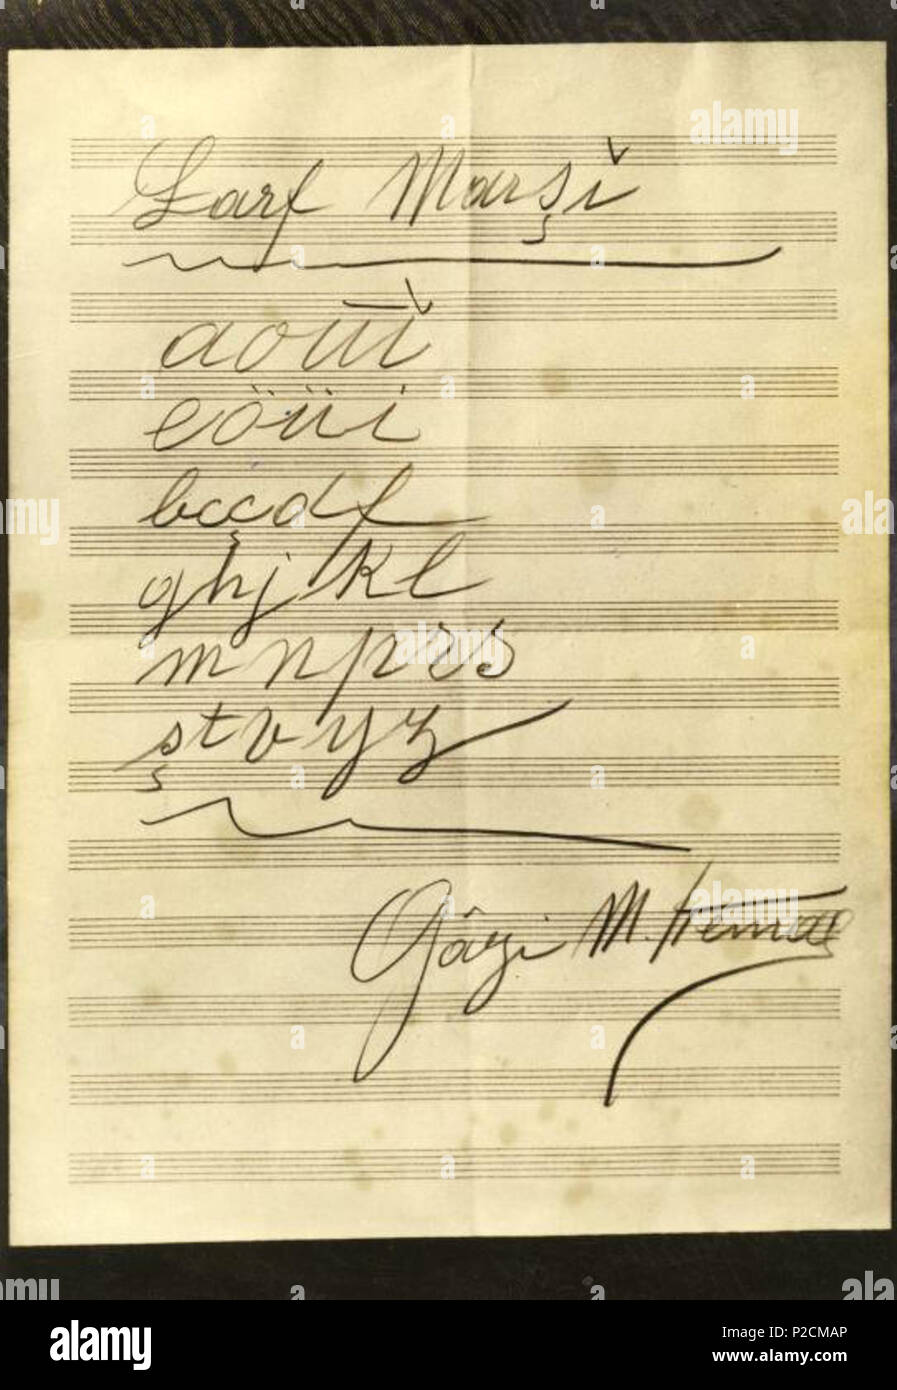 Ẕarf Marşǐ
aoūǐ
eöüi
bcçdf
ghjkl
mnprs
ştvyz
Gâzi M. Kemal
alamy
alamy
Image ID: P2CMAP
www.alamy.com